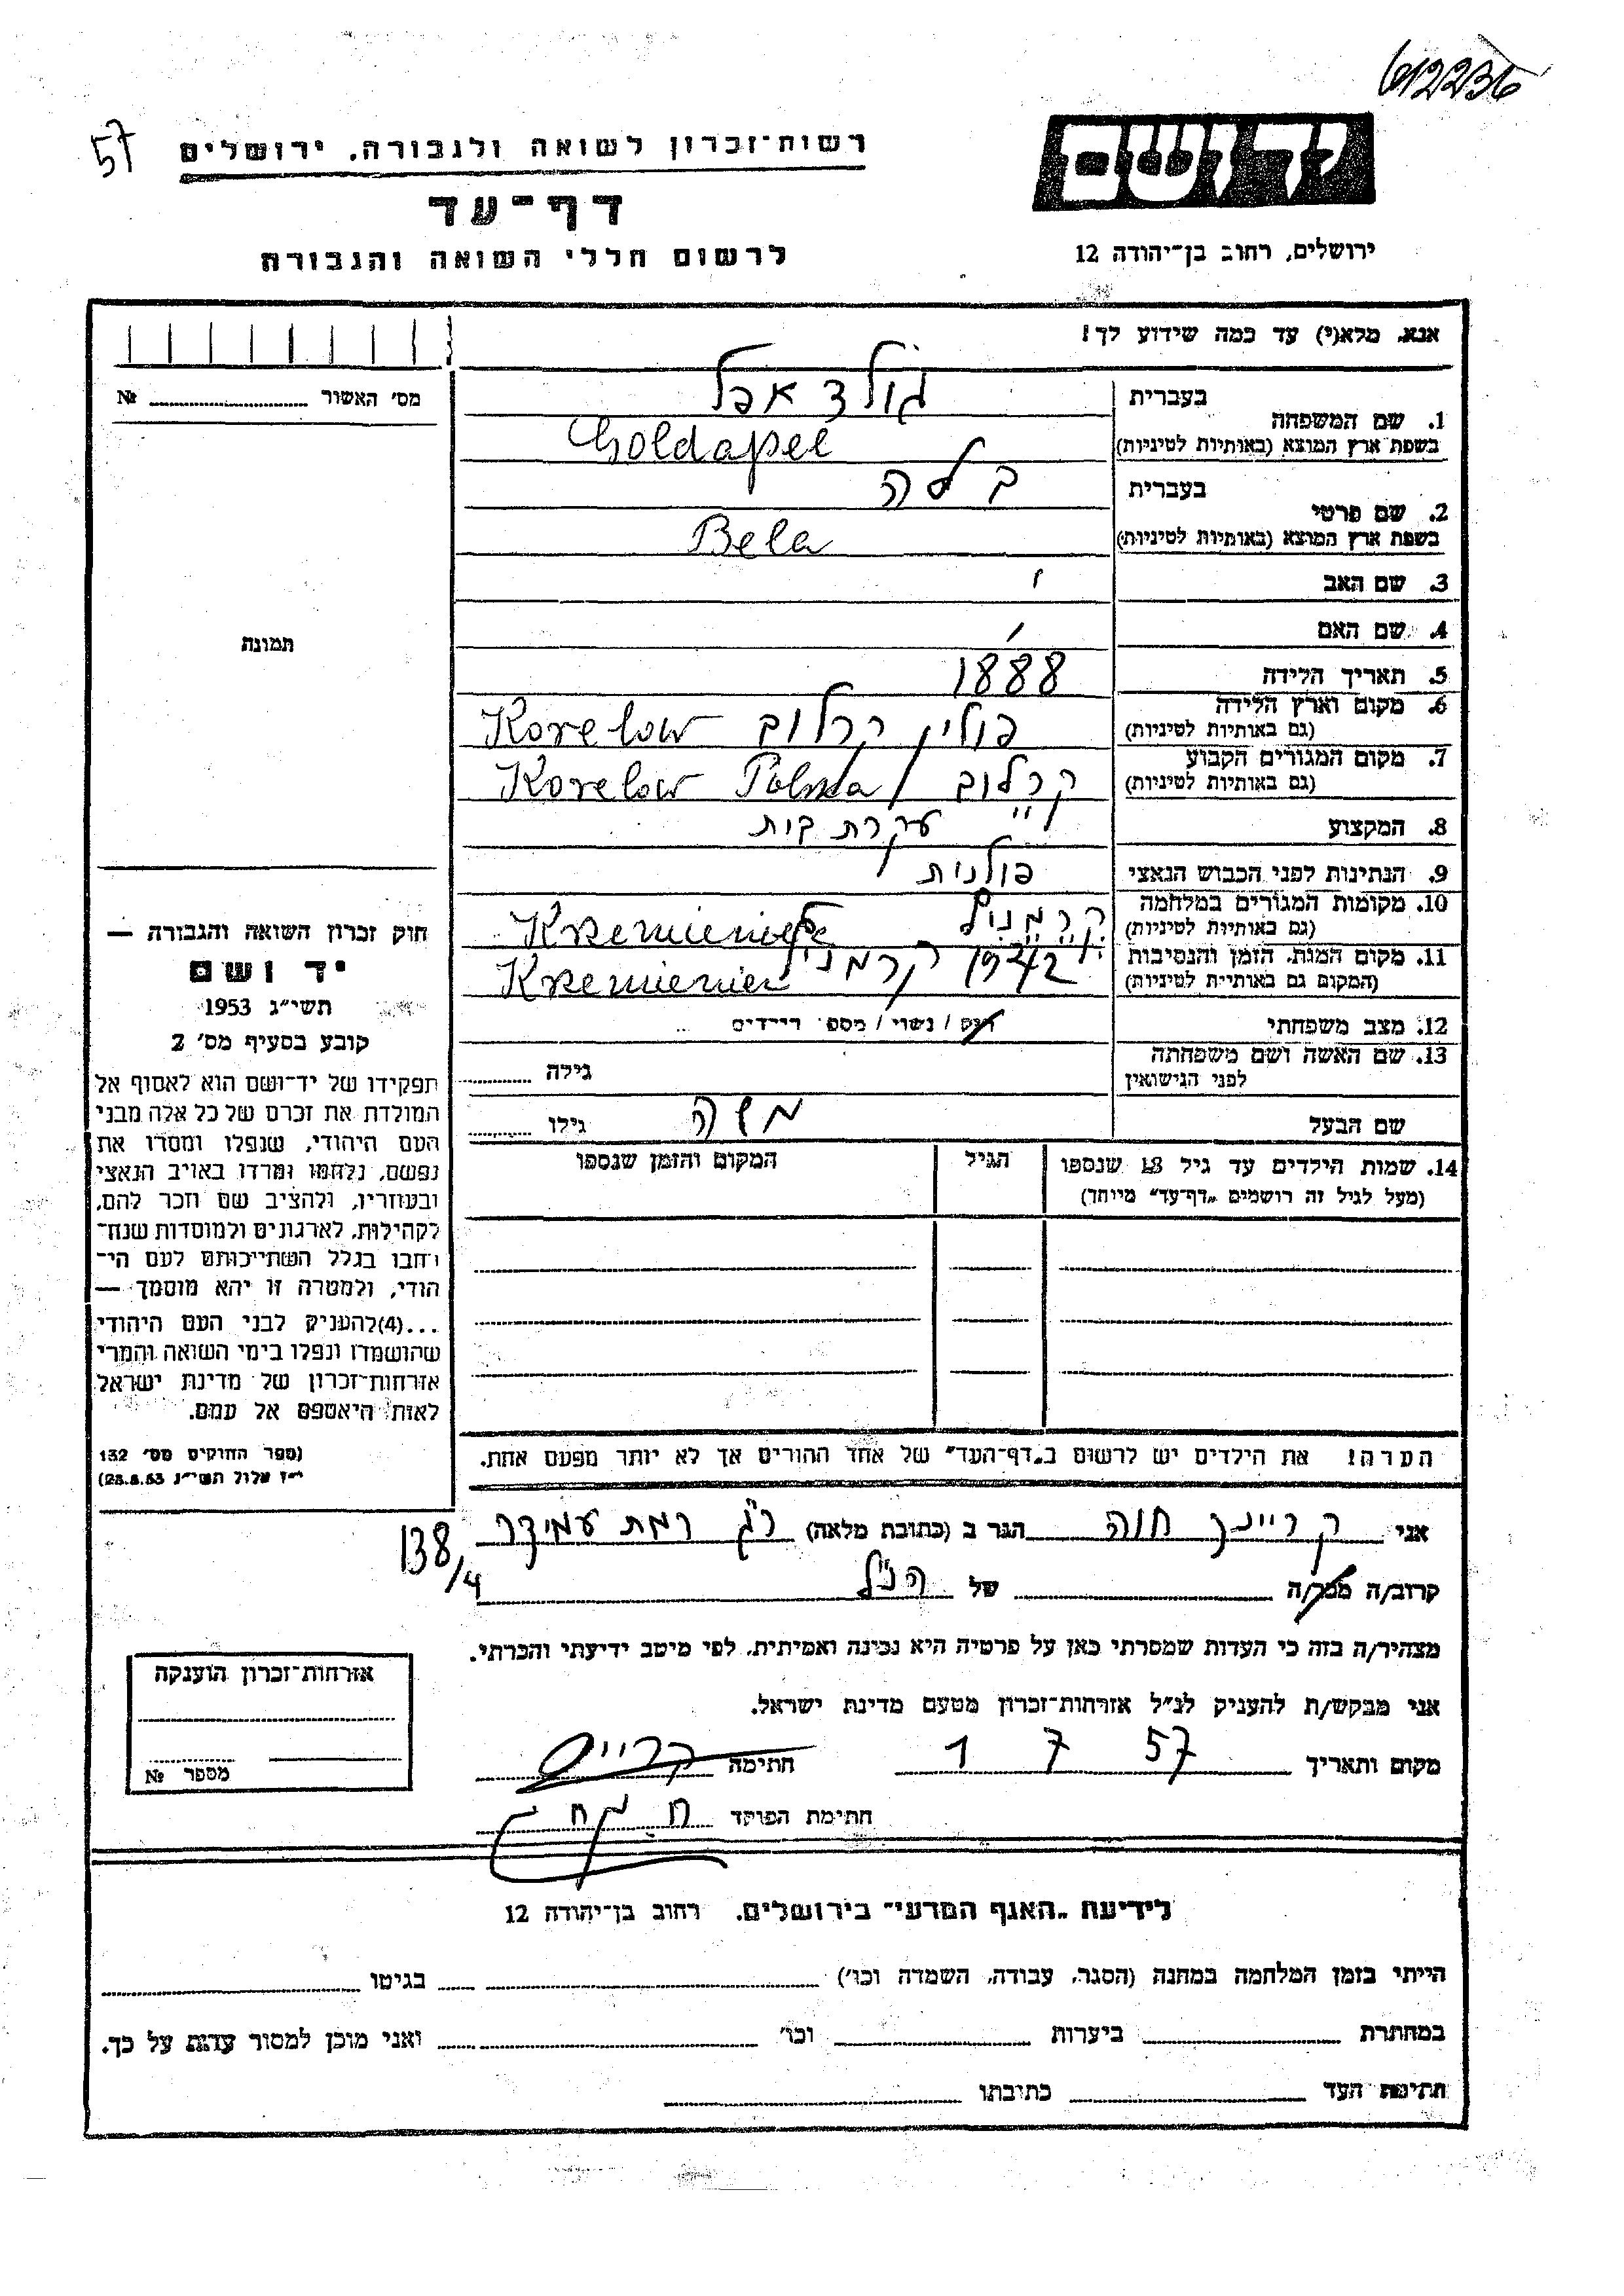 612236
57
רשות־זכרון לשואה ולגבורה, ירושלים
דף־עד
לרשום חללי השואה והגבורה
יד ושם
ירושלים, רחוב בן־יהודה 12
אנא, מלא(י) עד כמה שידוע לך!
מס׳ האשור № 
1. שם המשפחה
בעברית גולד אפל
בשפת ארץ המוצא (באותיות לטיניות) Goldapel
2. שם פרטי
בעברית בלה
בשפת ארץ המוצא (באותיות לטיניות) Bela
3. שם האב
4. שם האם
5. תאריך הלידה 1888
6. מקום וארץ הלידה
(גם באותיות לטיניות) פולין קרלוב Korelow
7. מקום המגורים הקבוע
(גם באותיות לטיניות) קרלוב / Korelow
8. המקצוע עקרת בית
9. הנתינות לפני הכבוש הנאצי פולנית
10. מקומות המגורים במלחמה
(גם באותיות לטיניות)
11. מקום המות, הזמן והנסיבות
(המקום גם באותיות לטיניות) 1942
12. מצב משפחתי
רוק / נשוי / מספר הילדים
13. שם האשה ושם משפחתה
לפני הנישואין
גילה
שם הבעל משה גילו
14. שמות הילדים עד גיל 18 שנספו
(מעל לגיל זה רושמים „דף־עד״ מיוחד)
הגיל
המקום והזמן שנספו
הערה! את הילדים יש לרשום ב„דף־העד״ של אחד ההורים אך לא יותר מפעם אחת.
תמונה
חוק זכרון השואה והגבורה —
יד ושם
תשי״ג 1953
קובע בסעיף מס׳ 2
תפקידו של יד־ושם הוא לאסוף אל
המולדת את זכרם של כל אלה מבני
העם היהודי, שנפלו ומסרו את
נפשם, נלחמו ומרדו באויב הנאצי
ובעוזריו, ולהציב שם וזכר להם,
לקהילות, לארגונים ולמוסדות שנח־
רבו בגלל השתייכותם לעם הי־
הודי, ולמטרה זו יהא מוסמך —
...(4)להעניק לבני העם היהודי
שהושמדו ונפלו בימי השואה והמרי
אזרחות־זכרון של מדינת ישראל
לאות היאספם אל עמם.
(ספר החוקים מס׳ 132
י״ז אלול תשי״ג 28.8.53)
אני קריינר חוה הגר ב (כתובת מלאה) ר״ג רמת עמידר
138/4
קרוב/ה מכר/ה של הנ״ל
מצהיר/ה בזה כי העדות שמסרתי כאן על פרטיה היא נכונה ואמיתית, לפי מיטב ידיעתי והכרתי.
אני מבקש/ת להעניק לנ״ל אזרחות־זכרון מטעם מדינת ישראל.
מקום ותאריך 1 7 57 חתימה
חתימת הפוקד
אזרחות־זכרון הוענקה
מספר №
לידיעת „האגף המדעי״ בירושלים, רחוב בן־יהודה 12
הייתי בזמן המלחמה במחנה (הסגר, עבודה, השמדה וכו׳) בגיטו
במחתרת ביערות וכו׳ ואני מוכן למסור עדות על כך.
חתימת העד כתובתו